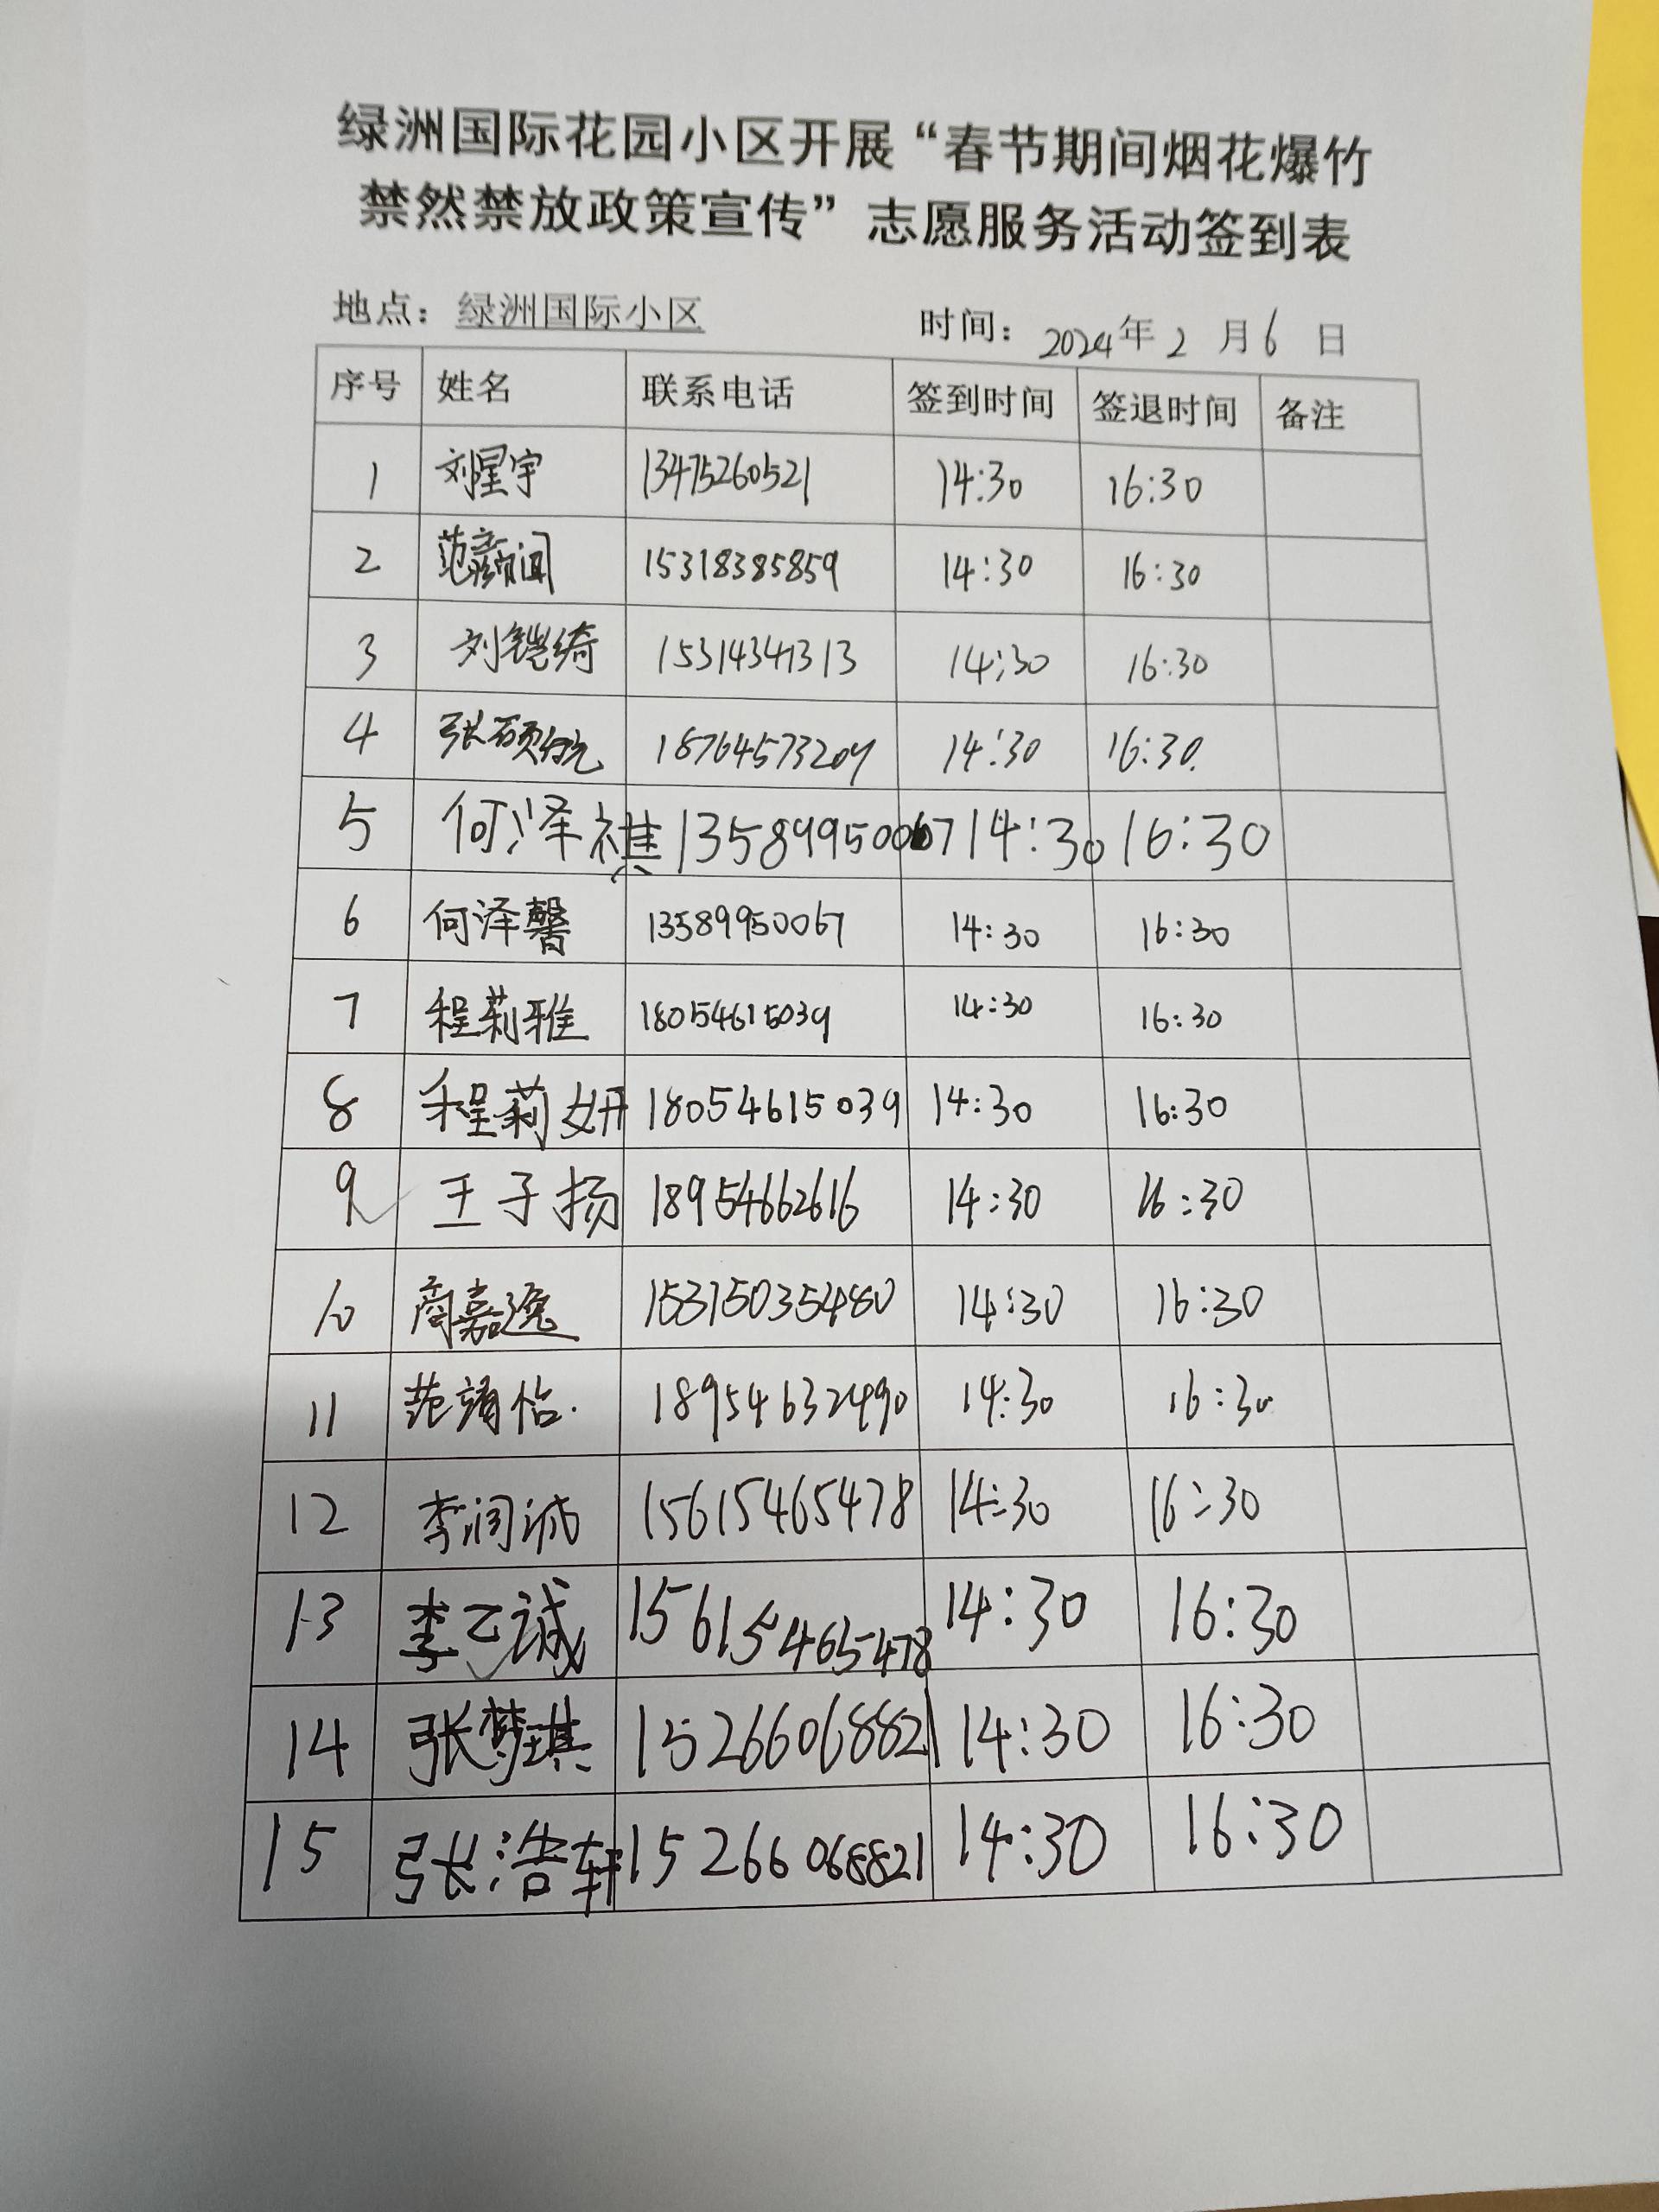 绿洲国际花园小区开展“春节期间烟花爆竹
禁然禁放政策宣传”志愿服务活动签到表
地点：绿洲国际小区 时间：2024年2月6日
序号 姓名 联系电话 签到时间 签退时间 备注
1 刘星宇 13475260521 14:30 16:30
2 15318385859 14:30 16:30
3 刘铠绮 15314341313 14:30 16:30
4 张硕航 18764573209 14:30 16:30
5 何泽祺 13589950067 14:30 16:30
6 何泽馨 13589950067 14:30 16:30
7 程莉雅 18054615039 14:30 16:30
8 程莉妍 18054615039 14:30 16:30
9 王子扬 18954662616 14:30 16:30
10 商嘉逸 14:30 16:30
11 范靖怡 18954632490 14:30 16:30
12 李润诚 15615465478 14:30 16:30
13 李乙诚 15615465478 14:30 16:30
14 张梦琪 15266068821 14:30 16:30
15 张浩轩 15266068821 14:30 16:30